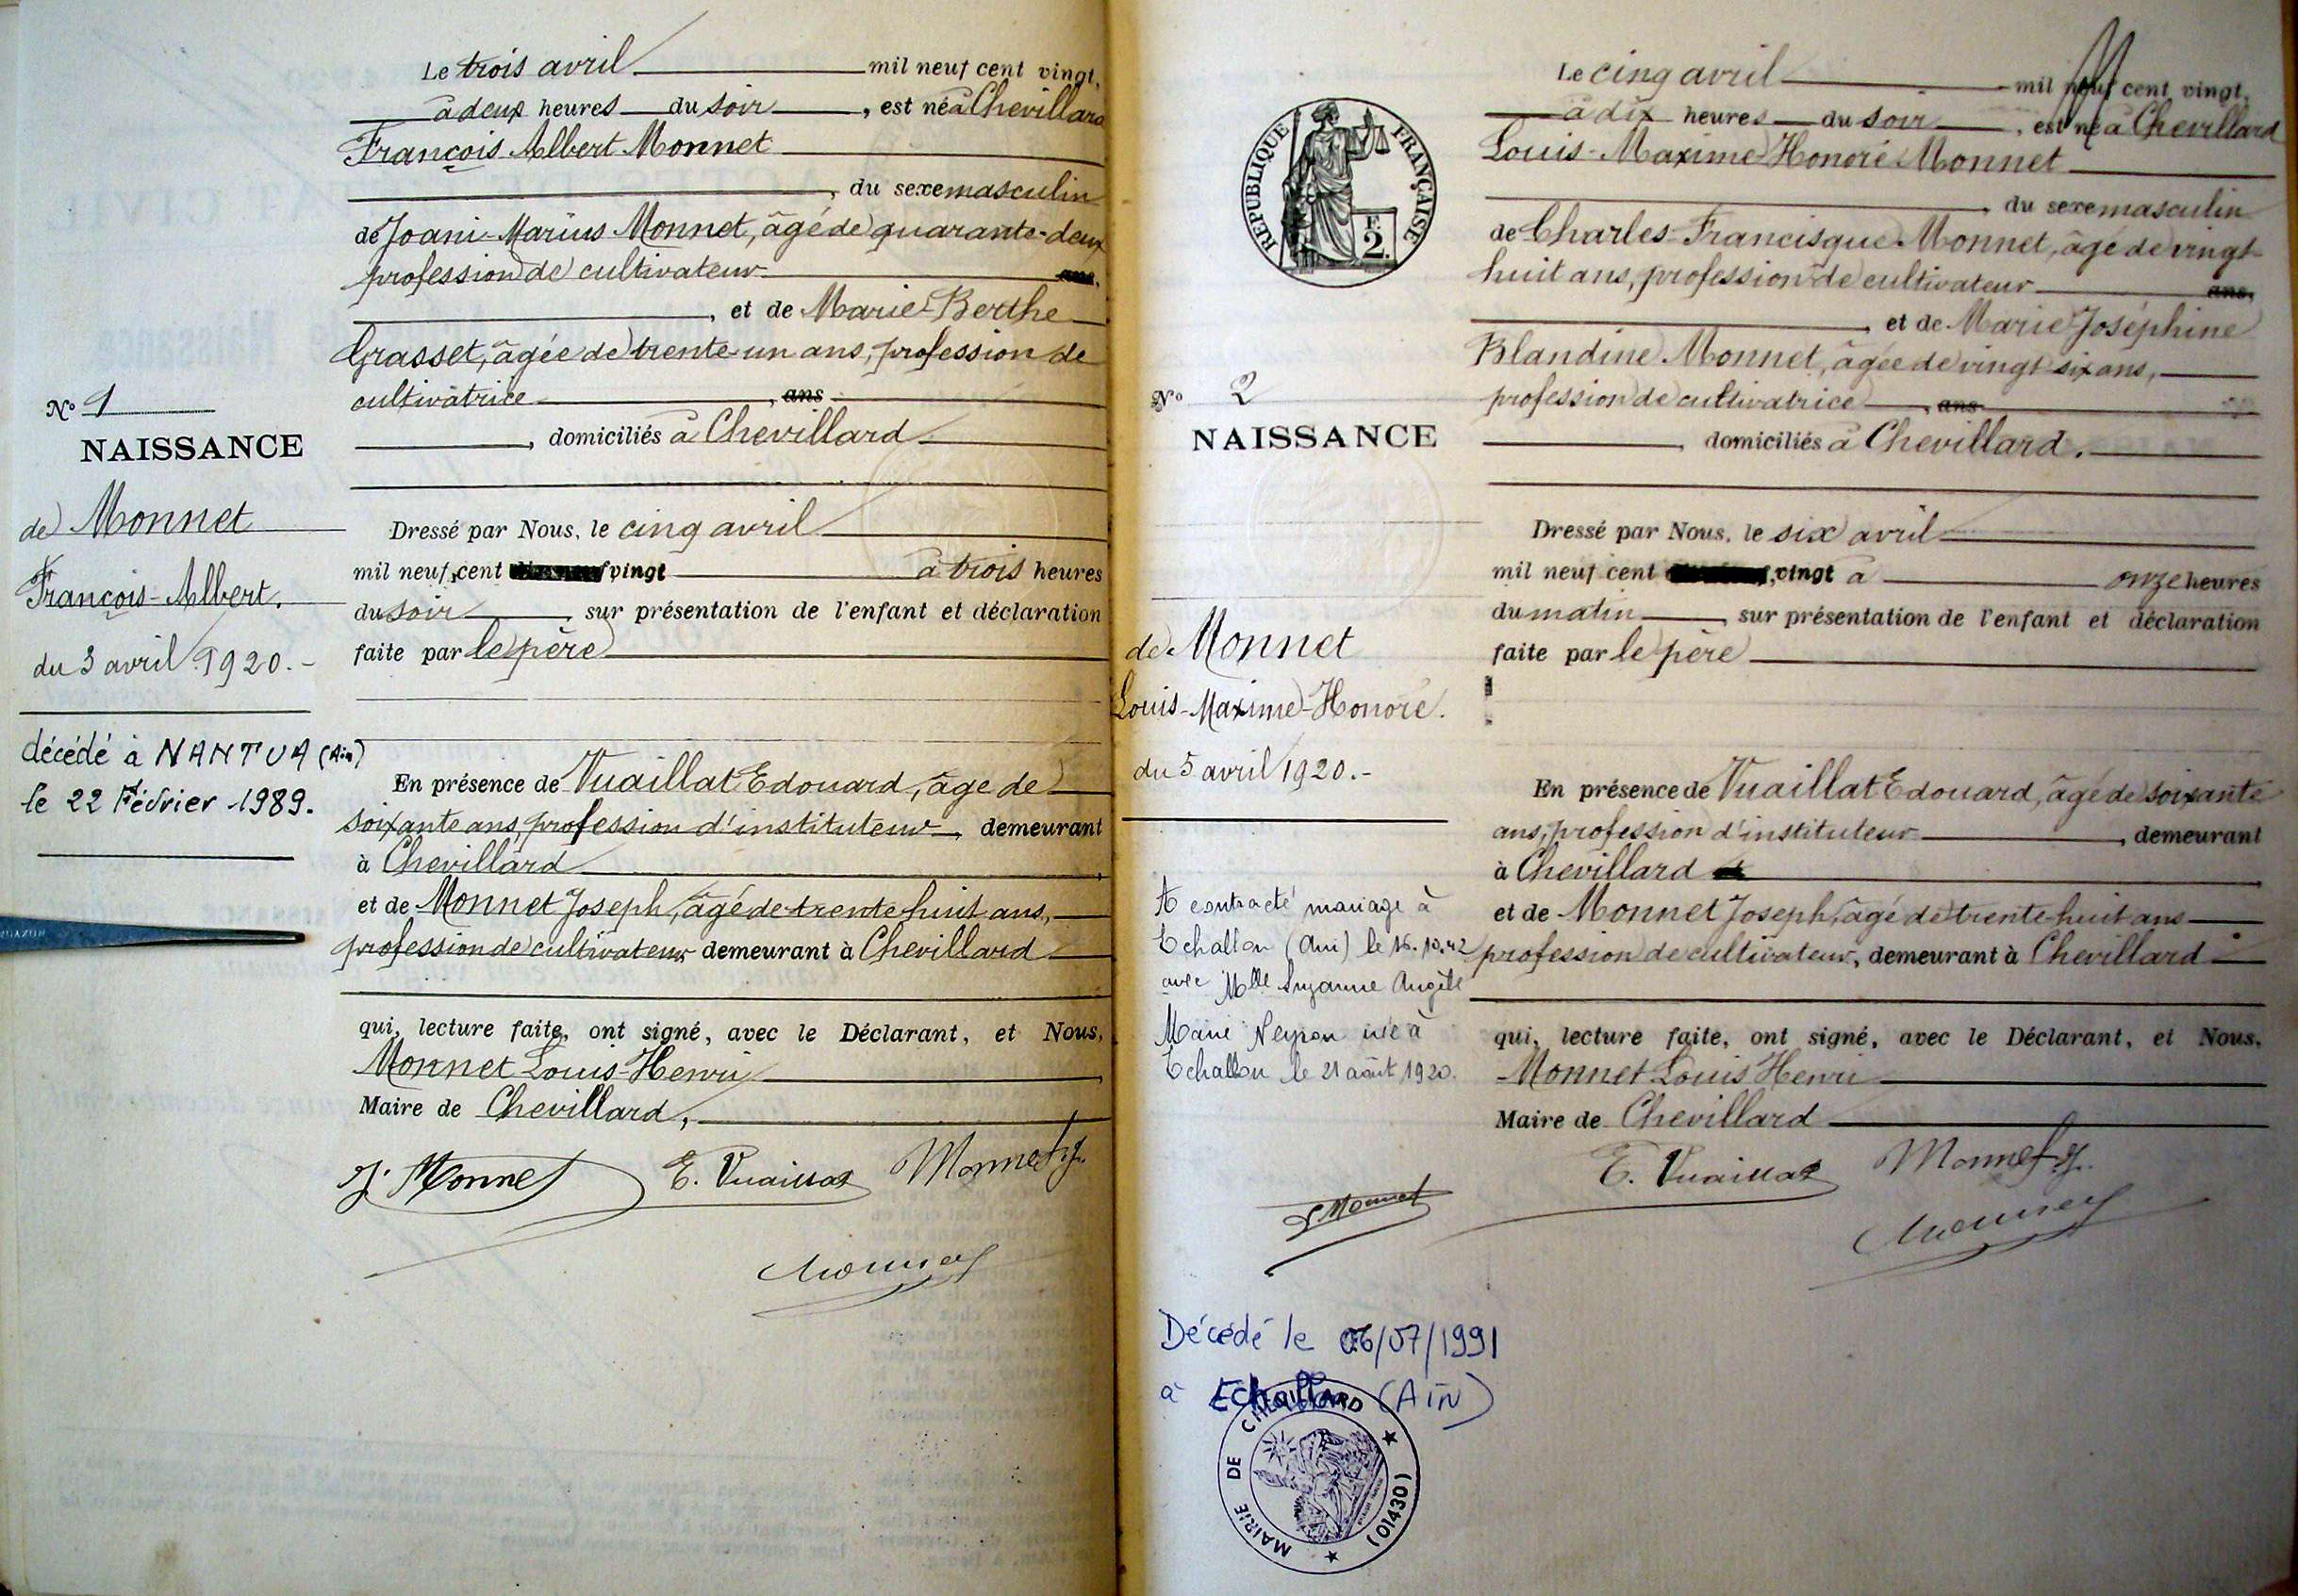 Le trois avril mil neuf cent vingt,
à deux heures du soir, est né à Chevillard
François Albert Monnet
, du sexe masculin
de Joani-Marius Monnet, âgé de quarante-deux
profession de cultivateur ans,
, et de Marie-Berthe
Grasset, âgée de trente-un ans, profession de
cultivatrice, ans
, domiciliés à Chevillard
Dressé par Nous, le cinq avril
mil neuf cent vingt à trois heures
du soir sur présentation de l'enfant et déclaration
faite par le père
En présence de Vuaillat Edouard, âgé de
soixante ans, profession d'instituteur, demeurant
à Chevillard
et de Monnet Joseph, âgé de trente huit ans,
profession de cultivateur, demeurant à Chevillard
qui, lecture faite, ont signé, avec le Déclarant, et Nous,
Monnet Louis-Henri
Maire de Chevillard,
J. Monnet E. Vuaillat Monnet J.
Monnet
Nº 1
NAISSANCE
de Monnet
François-Albert.
du 3 avril 1920.-
décédé à NANTUA (Ain)
le 22 Février 1989.
Le cinq avril mil neuf cent vingt,
à dix heures du soir, est né à Chevillard
Louis-Maxime Honoré Monnet
, du sexe masculin
de Charles-Francisque Monnet, âgé de vingt-
huit ans, profession de cultivateur ans,
, et de Marie Joséphine
Blandine Monnet, âgée de vingt-six ans,
profession de cultivatrice, ans
, domiciliés à Chevillard.
Dressé par Nous, le six avril
mil neuf cent vingt à onze heures
du matin, sur présentation de l'enfant et déclaration
faite par le père
En présence de Vuaillat Edouard, âgé de soixante
ans, profession d'instituteur, demeurant
à Chevillard
et de Monnet Joseph, âgé de trente-huit ans
profession de cultivateur, demeurant à Chevillard
qui, lecture faite, ont signé, avec le Déclarant, et Nous,
Monnet Louis Henri
Maire de Chevillard
E. Vuaillat Monnet J.
Monnet
RÉPUBLIQUE FRANÇAISE
F.
2.
Nº 2
NAISSANCE
de Monnet
Louis-Maxime-Honoré.
du 5 avril 1920.-
A contracté mariage à
Echallon (Ain) le 16.10.42
avec Mlle Suzanne Angèle
Marie Neyron née à
Echallon le 21 août 1920.
L Monnet
Décédé le 06/07/1991
à Echallon (AIN)
MAIRIE DE CHEVILLARD
(01430)